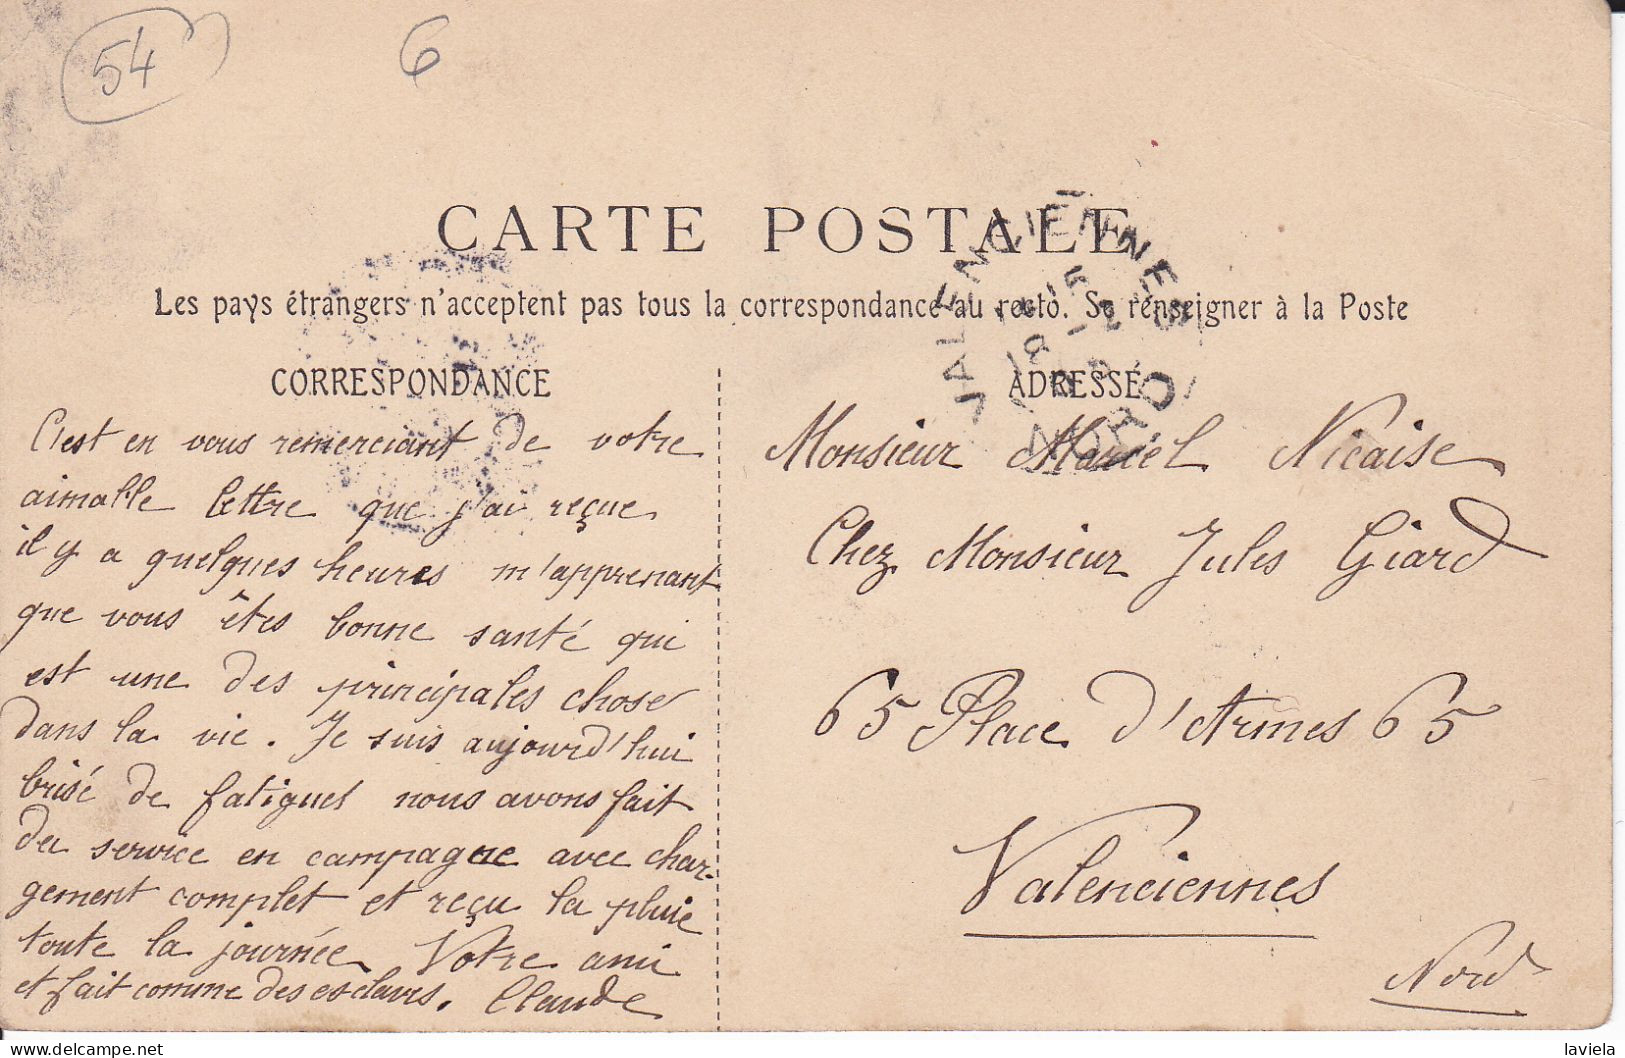 54
6
CARTE POSTALE
VALENCIENNES
NORD
Les pays étrangers n'acceptent pas tous la correspondance au recto. Se renseigner à la Poste
CORRESPONDANCE
C'est en vous remerciant de votre
aimable lettre que j'ai reçue
il y a quelques heures m'apprenant
que vous êtes bonne santé qui
est une des principales chose
dans la vie. Je suis aujourd'hui
brisé de fatigues nous avons fait
du service en campagne avec char-
gement complet et reçu la pluie
toute la journée Votre ami
et fait comme des esclaves. Claude
ADRESSE
Monsieur Marcel Nicaise
Chez Monsieur Jules Giard
65 Place d'Armes 65
Valenciennes
Nord
laviela